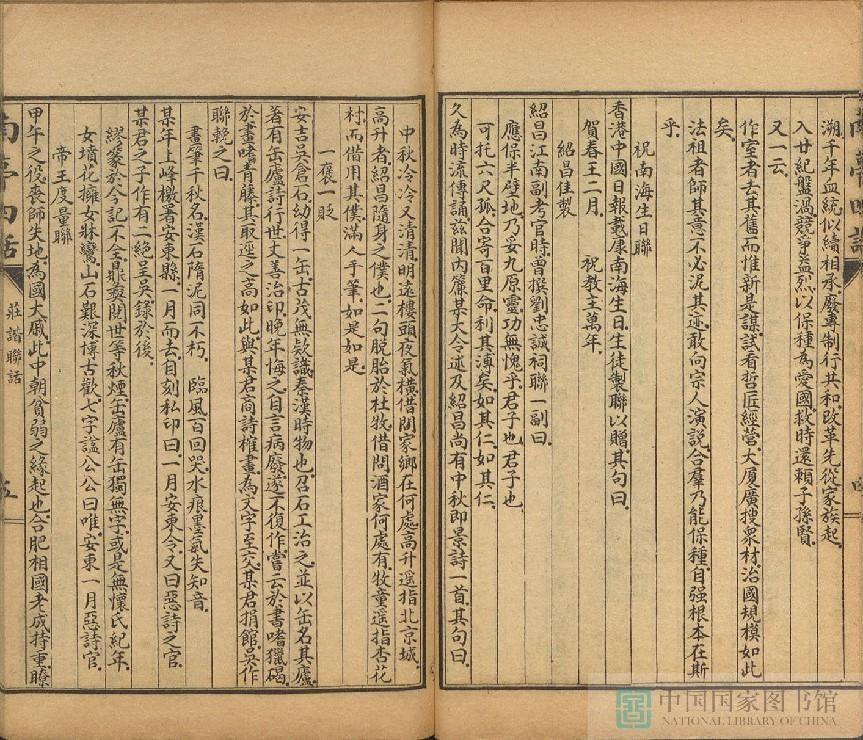 溯千年血統似續相承廢專制行共和改革先從家族起
入廿紀盤渦競爭益烈以保種為愛國救時還賴子孫賢
又一云
作室者去其舊而惟新是謀試看哲匠經營大厦廣搜衆材治國規模如此
矣
法祖者師其意不必泥其迹敢向宗人演説合羣乃能保種自强根本在斯
乎
祝南海生日聯
香港中國日報載康南海生日生徒製聯以贈其句曰
賀春王二月 祝教主萬年
紹昌佳製
紹昌江南副考官時曾撰劉忠誠祠聯一副曰
應保半壁地乃妥九原靈功無愧乎君子也君子也
可托六尺孤合寄百里命利其溥矣如其仁如其仁
久為時流傳誦兹閱内廉某大令述及紹昌尚有中秋即景詩一首其句曰
中秋冷冷又清清明遠樓頭夜氣橫借問家鄉在何處高升遥指北京城
高升者紹昌隨身之僕也二句脱胎於杜牧借問酒家何處有牧童遥指杏花
村而借用其僕滿人手筆如是如是
一褒一貶
安吉吳倉石幼得一缶古茂無欵識秦漢時物也召石工治之並以缶名其廬
著有缶廬詩行世丈善治印晚年悔之自言病廢遂不復作嘗云於書嗜獵碣
於畫嗜青藤其取逕之高如此與某君商詩榷畫為文字至交某君捐館吳作
聯輓之曰
畫筆千秋名漢石隋泥同不朽 臨風百回哭水痕墨氣失知音
某年上峰檄署安東縣一月而去自刻私印曰一月安東令又曰惡詩之官
某君之子作有二絶呈吳録於後
繆篆於今記不全鼎彝閱世等秋煙缶廬有缶獨無字或是無懷氏紀年
女墳花擁女牀鸞山石艱深博古歡七字謚公公曰唯安東一月惡詩官
帝王度量聯
甲午之役喪師失地為國大戚此中朝貧弱之緣起也合肥相國老成持重瞭
南亭四話
莊諧聯話
五
南亭四話
四
中国国家图书馆
NATIONAL LIBRARY OF CHINA